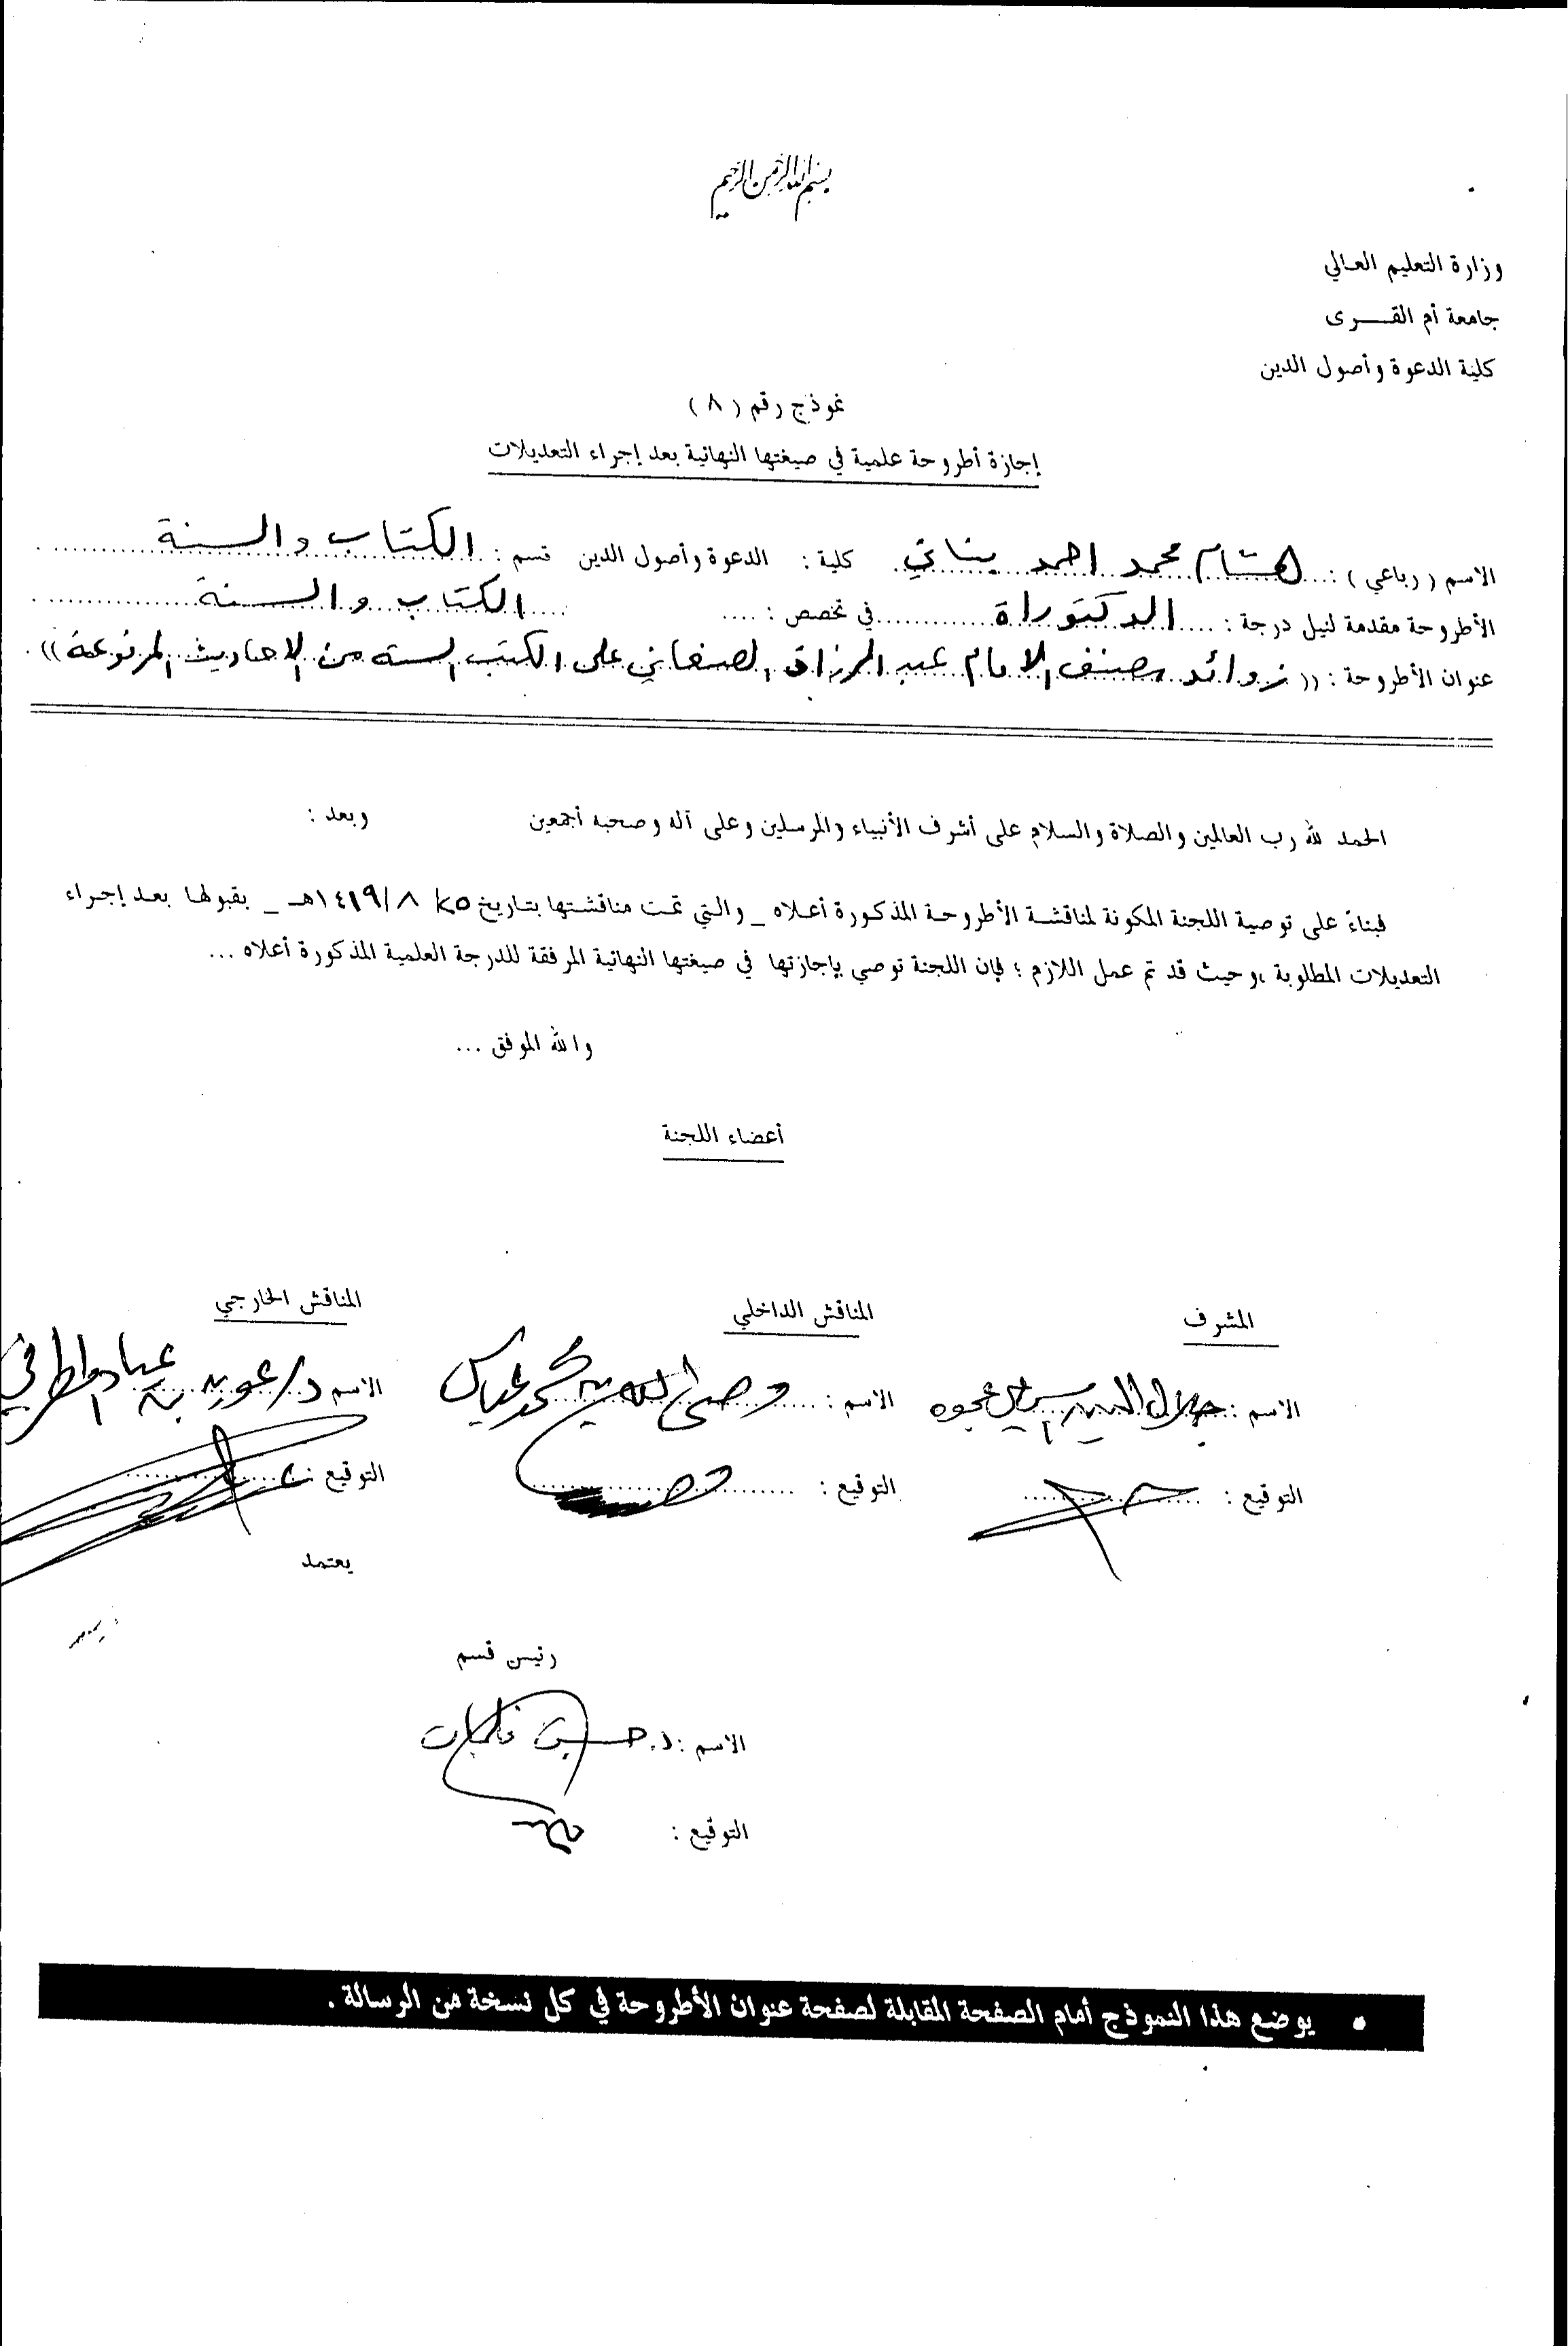 بسم الله الرحمن الرحيم
وزارة التعليم العالي
جامعة أم القــرى
كلية الدعوة وأصول الدين
نموذج رقم ( ٨ )
إجازة أطروحة علمية في صيغتها النهائية بعد إجراء التعديلات
الاسم ( رباعي ) : هشام محمد احمد بناني كلية : الدعوة وأصول الدين قسم : الكتاب والسنة
الأطروحة مقدمة لنيل درجة : الدكتوراة في تخصص : الكتاب والسنة
عنوان الأطروحة : (( زوائد مصنف الامام عبد الرزاق الصنعاني على الكتب الستة من الاحاديث المرفوعة ))
الحمد لله رب العالمين والصلاة والسلام على أشرف الأنبياء والمرسلين وعلى آله وصحبه أجمعين وبعد :
فبناءً على توصية اللجنة المكونة لمناقشة الأطروحة المذكورة أعلاه _ والتي تمت مناقشتها بتاريخ ٢٥/ ٨ /١٤١٩هـ _ بقبولها بعد إجراء
التعديلات المطلوبة ،وحيث قد تم عمل اللازم ؛ فإن اللجنة توصي بإجازتها في صيغتها النهائية المرفقة للدرجة العلمية المذكورة أعلاه ...
والله الموفق ...
أعضاء اللجنة
المشرف المناقش الداخلي المناقش الخارجي
الاسم : جلال الدين عجوه الاسم : وصي الله بن محمد عباس الاسم د/ عويد بن عياد المطرفي
التوقيع : التوقيع : التوقيع :
يعتمد
رئيس قسم
الاسم : د.
التوقيع :
• يوضع هذا النموذج أمام الصفحة المقابلة لصفحة عنوان الأطروحة في كل نسخة من الرسالة .